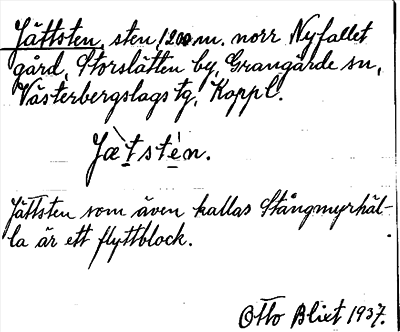 Jättsten, sten, 1200 m. norr Nyfallet
gård, Storslätten by, Grangärde sn,
Västerbergslags tg, Koppl.
Jæ̀tstèn.
Jättsten som även kallas Stångmyrhäl-
la är ett flyttblock.
Otto Blixt 1937.